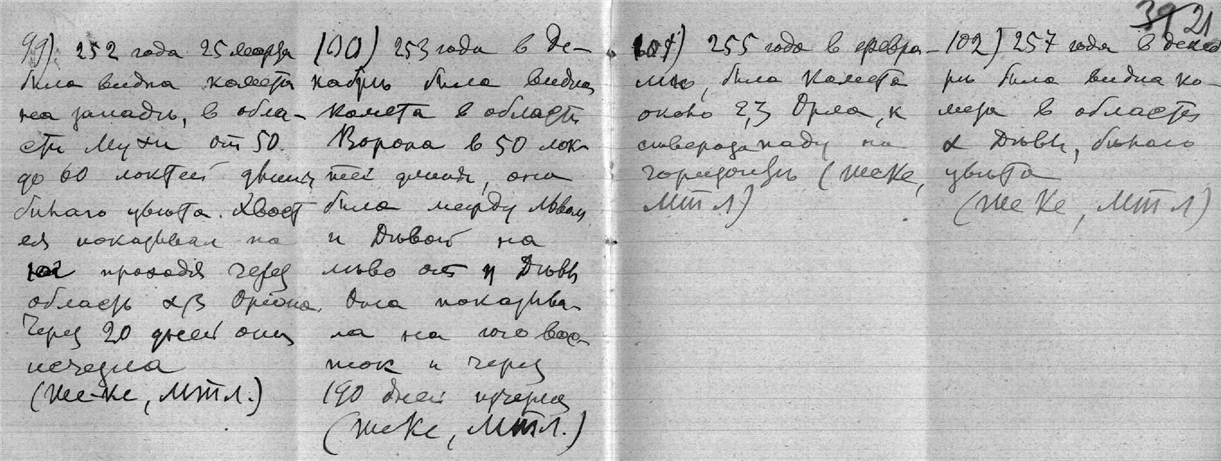 39 21
99) 252 года 25 марта
была видна комета
на западѣ, в обла-
сти Мухи от 50
до 60 локтей длины
бѣлаго цвѣта. Хвост
ея показывал на
юг проходя через
область α β Ориона.
Через 20 дней она
исчезла
(Шеке, МТЛ.)
100) 253 года в де-
кабрѣ была видна
комета в области
Ворона в 50 лок-
тей длины, она
была между Львом
и Дѣвой на
лѣво от η Дѣвы
Она показыва-
ла на юго вос-
ток и через
190 дней исчезла
(Шеке, МТЛ.)
101) 255 года в февра-
лѣ, была комета
около 2,3 Орла, к
сѣверозападу на
горизонтѣ (Шеке,
МТЛ)
102) 257 года в декаб
рѣ была видна ко-
мета в области
α Дѣвы, бѣлаго
цвѣта
(Шеке, МТЛ)